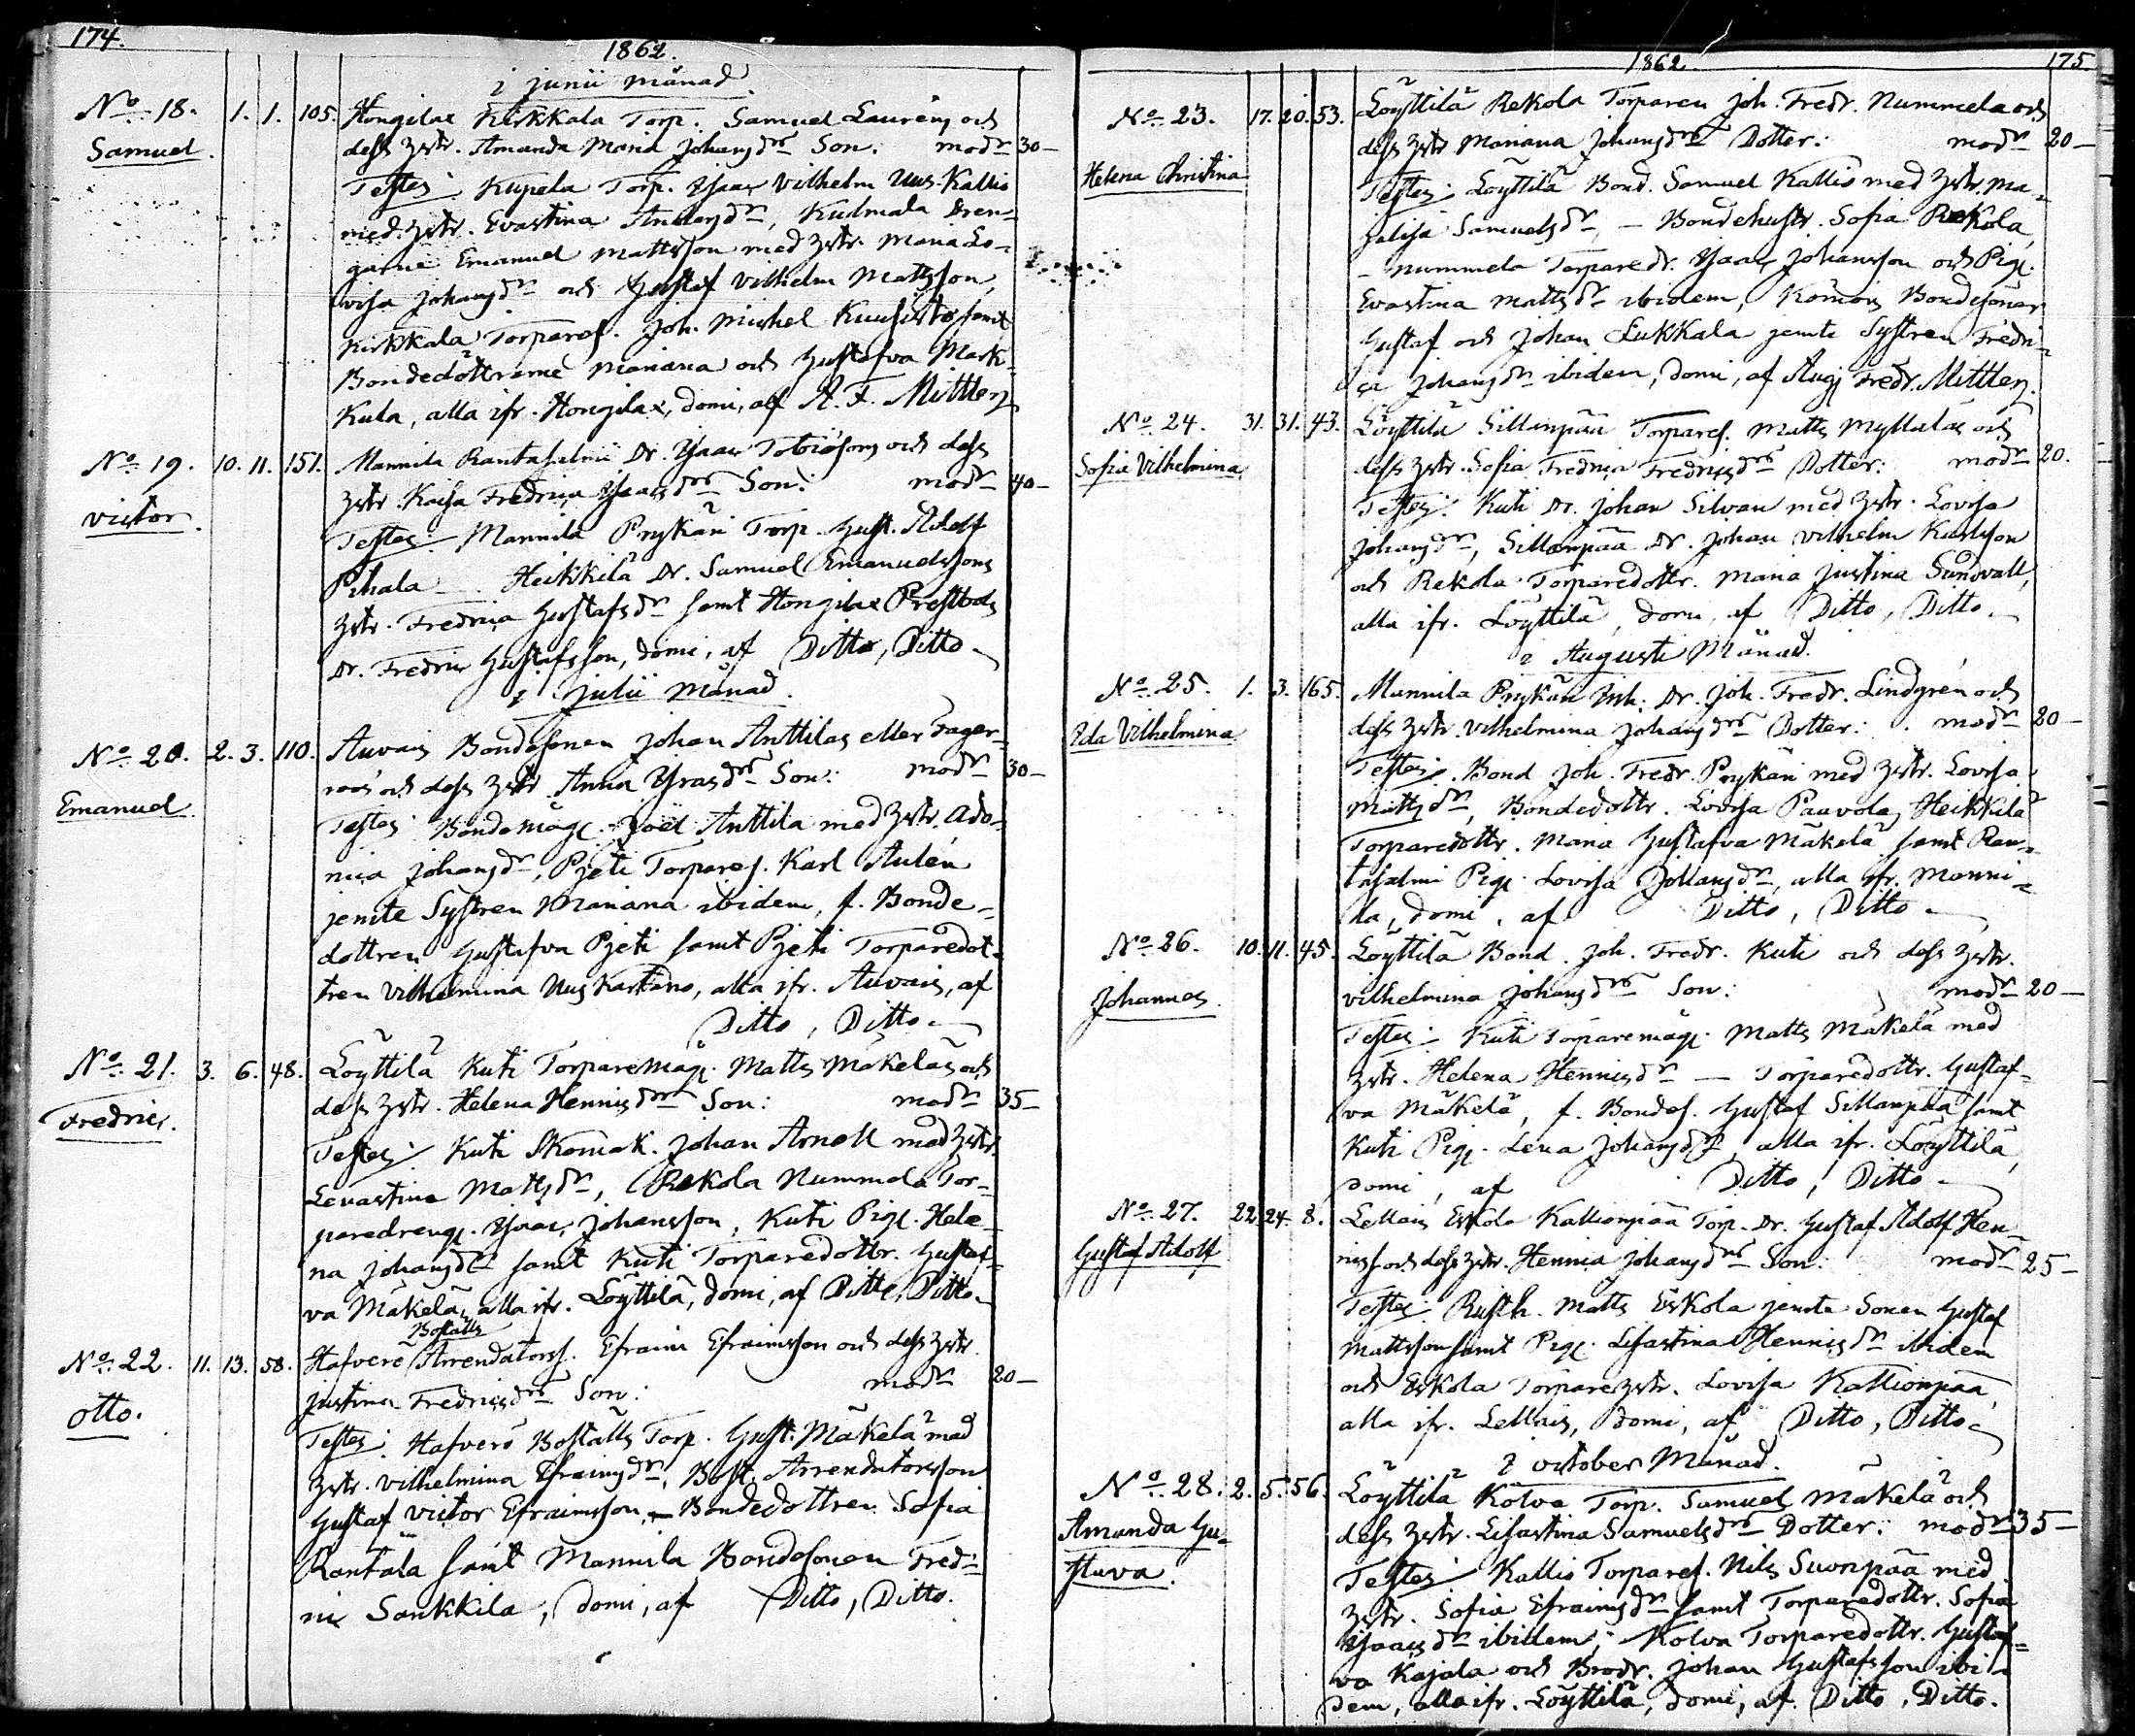 174.
1862.
i junii månad.
No 18. 1. 1. 105. Hongilax Kirkkala Torp. Samuel Lauréns och
Samuel. dess hstr. Amanda Maria Johansdrs Son. modr 30—
Testes: Kupela Torp. Isaac Vilhelm Uus-Kallio
med hstr. Evastina Andersdr, Kudmala Dren-
garne Emanuel Mattsson med hstr. Maria Lo-
visa Johansdr och Gustaf Vilhelm Mattsson,
Kirkkala Torpares. Joh. Michel Kuusisto samt
Bondedöttrarne Mariana och Gustafva Mark-
kula, alla ifr. Hongilax, domi, af A. F. Mittler.
No 19. 10. 11. 151. Mannila Rantasalmi Dr. Isaac Tobiæsons och dess
Victor. hstr. Kaisa Fredrica Isaacsdrs Son: modr 40—
Testes: Mannila Prykäri Torp. Gust. Adolf
Pihala — Heikkilä Dr. Samuel Emanuelssons
hstr. Fredrica Gustafsdr samt Hongilax Prestbols
Dr. Fredric Gustafsson, domi, af Ditto, Ditto —
i julii månad.
No 20. 2. 3. 110. Auvais Bondesonen Johan Anttilas eller Fager-
Emanuel. roos och dess hstr. Anna Yrasdrs Son: modr 30—
Testes: Bondemåg. Joël Anttila med hstr. Ado-
nica Johansdr, Pjeti Torpares. Karl Aulén
jemte Systren Mariana ibidem, f. Bonde-
dottren Gustafva Pjeti samt Pjeti Torparedot-
tren Vilhelmina Uus Kartano, alla ifr. Auvais, af
Ditto, Ditto —
No 21. 3. 6. 48. Löyttilä Kuti Torparemåg. Matts Mäkeläs och
Fredric. dess hstr. Helena Henricsdrs Son: modr 35—
Testes: Kuti Skomak. Johan Arnell med hstr.
Lenastina Mattsdr, Rekola Nummela Tor-
paredreng. Isaac Johansson, Kuti Pig. Hele-
na Johansdr samt Kuti Torparedottr. Gustaf-
va Mäkelä, alla ifr. Löyttilä, domi, af Ditto, Ditto —
Boställs
No 22. 11. 13. 58. Hafverö Arrendators. Efraim Efraimsson och dess hstr.
Otto. Justina Fredricsdrs Son: modr 20—
Testes: Hafverö Boställs Torp. Gust. Mäkelä med
hstr. Vilhelmina Efraimsdr, Bost. Arrendatorsson
Gustaf Victor Efraimsson, — Bondedottren Sofia
Rantala samt Mannila Bondesonen Fred-
ric Sankkila, domi, af Ditto, Ditto.
1862. 175.
No 23. 17. 20. 53. Löyttilä Rekola Torparen Joh. Fredr. Nummela och
Helena Christina dess hstr. Mariana Johansdrs Dotter: modr 20—
Testes: Löyttilä Bond. Samuel Kallio med hstr. Ma-
jalisa Samuelsdr, — Bondehustr. Sofia Rekola,
— Nummela Torparedr. Isaac Johansson och Pig.
Evastina Mattsdr ibidem, Kömöis Bondesöner
Gustaf och Johan Lukkala jemte Systren Fredri-
ca Johansdr ibidem, domi, af Aug. Fredr. Mittler.
No 24. 31. 31. 43. Löyttilä Sillanpää Torpares. Matts Myllaläs och
Sofia Vilhelmina dess hstr. Sofia Fredrica Fredricsdrs Dotter: modr 20.
Testes: Kuti Dr. Johan Silvan med hstr. Lovisa
Johansdr, Sillanpää Dr. Johan Vilhelm Karlsson
och Rekola Torparedottr. Maria Justina Sundvall,
alla ifr. Löyttilä, domi, af Ditto, Ditto —
i Augusti Månad.
No 25. 1. 3. 165. Mannila Prykäri Inh. Dr. Joh. Fredr. Lindgrén och
Ida Vilhelmina dess hstr. Vilhelmina Johansdrs Dotter: modr 20—
Testes: Bond Joh. Fredr. Prykäri med hstr. Lovisa
Mattsdr, Bondedottr. Lovisa Paavola, Heikkilä
Torparedottr. Maria Gustafva Mäkelä samt Ran-
tasalmi Pig. Lovisa Johansdr, alla ifr. Manni-
la, domi, af Ditto, Ditto —
No 26. 10. 11. 45. Löyttilä Bond. Joh. Fredr. Kuti och dess hstr.
Johannes. Vilhelmina Johansdrs Son: modr 20—
Testes: Kuti Torparemåg. Matts Mäkelä med
hstr. Helena Henricsdr — Torparedottr. Gustaf-
va Mäkelä, f. Bondes. Gustaf Sillanpää samt
Kuti Pig. Lena Johansdr, alla ifr. Löyttilä,
domi, af Ditto, Ditto —
No 27. 22. 24. 8. Lellais Eskola Kallionpää Torp. Dr. Gustaf Adolf Hen-
Gustaf Adolf rics. och dess hstr. Henrica Johansdrs Son: modr 25—
Testes: Rusth. Matts Eskola jemte Sonen Gustaf
Mattsson samt Pig. Lisastina Henricsdr ibidem
och Eskola Torparehstr. Lovisa Kallionpää,
alla ifr. Lellais, domi, af Ditto, Ditto —
i October Månad.
No 28. 2. 5. 56. Löyttilä Kolva Torp. Samuel Mäkelä och
Amanda Gu- dess hstr. Lisastina Samuelsdrs Dotter: modr 35—
stava. Testes: Kallio Torpares. Nils Suonpää med
hstr. Sofia Efraimsdr samt Torparedottr. Sofia
Isaacsdr ibidem, Kolva Torparedottr. Gustaf-
va Kajala och Brodr. Johan Gustafsson ibi-
dem, alla ifr. Löyttilä, domi, af Ditto, Ditto.